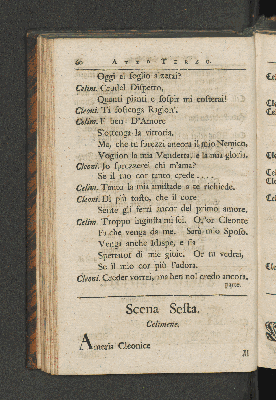 60 ATTO TERZO.
Oggi al soglio alzarai?
Celim. Crudel Dispetto,
Quanti pianti e sospir mi costerai!
Cleoni. Ti sostenga Ragion.
Celim. E ben D'Amore
S'ottenga la vittoria,
Ma, che tu sprezzi ancora il mio Nemico,
Voglion la mia Vendetta, e la mia gloria.
Cleoni. Jo sprezzerei chi m'ama?
Se il tuo cor tanto crede . . . .
Celim. Tanto la mia amistade a te richiede.
Cleoni. Di più tosto, che il core
Sente gli sforzi ancor del primo amore.
Celim. Troppo ingiusta mi sei. Or Cleonte
Fa che venga da me. Sarà mio Sposo.
Venga anche Idaspe, e sia
Spettator di mie gioie. Or tu vedrai,
Se il mio cor più l'adora.
Cleoni. Creder vorrei, ma ben nol credo ancora.
parte.
Scena Sesta.
Celimene.
Amerìa Cleonice